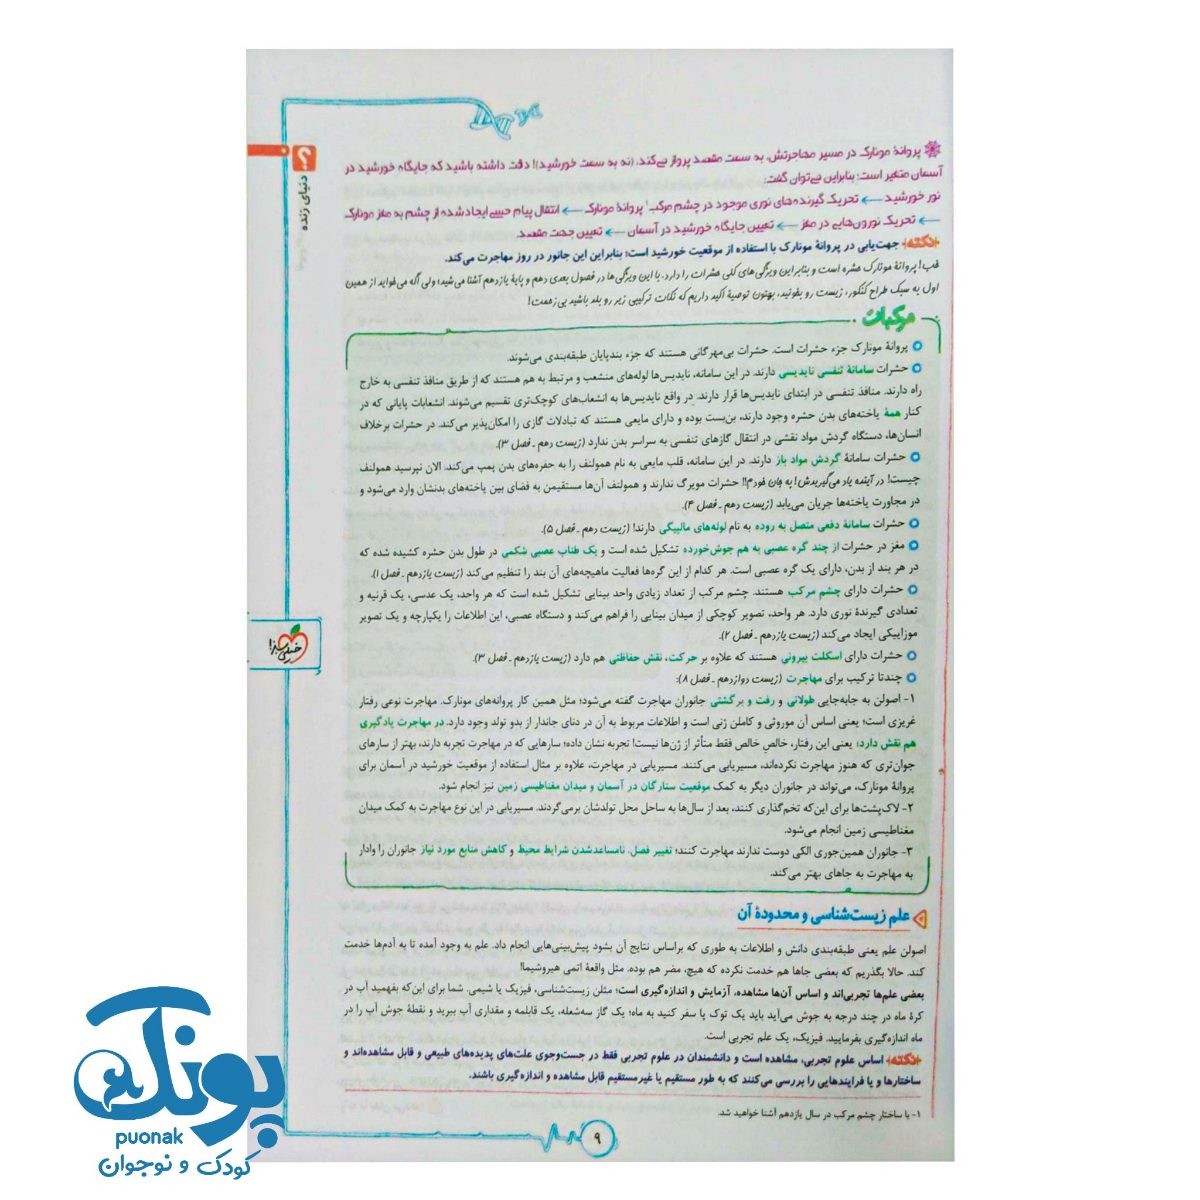 دنیای زنده
پروانهٔ مونارک در مسیر مهاجرتش، به سمت مقصد پرواز می‌کند، (نه به سمت خورشید)! دقت داشته باشید که جایگاه خورشید در
آسمان متغیر است؛ بنابراین می‌توان گفت:
نور خورشید ← تحریک گیرنده‌های نوری موجود در چشم مرکب۱ پروانهٔ مونارک ← انتقال پیام حسی ایجادشده از چشم به مغز مونارک
← تحریک نورون‌هایی در مغز ← تعیین جایگاه خورشید در آسمان ← تعیین جهت مقصد.
نکته جهت‌یابی در پروانهٔ مونارک با استفاده از موقعیت خورشید است؛ بنابراین این جانور در روز مهاجرت می‌کند.
خب! پروانهٔ مونارک حشره است و بنابراین ویژگی‌های کلی حشرات را دارد. با این ویژگی‌ها در فصول بعدی دهم و پایهٔ یازدهم آشنا می‌شید؛ ولی اگه می‌خواید از همین
اول به سبک طراح کنکور، زیست رو بخونید، بهتون توصیهٔ اکید داریم که نکات ترکیبی زیر رو بلد باشید بی زحمت!
مرکبات
پروانهٔ مونارک جزء حشرات است. حشرات بی‌مهرگانی هستند که جزء بندپایان طبقه‌بندی می‌شوند.
حشرات سامانهٔ تنفسی نایدیسی دارند. در این سامانه، نایدیس‌ها لوله‌های منشعب و مرتبط به هم هستند که از طریق منافذ تنفسی به خارج
راه دارند. منافذ تنفسی در ابتدای نایدیس‌ها قرار دارند. در واقع نایدیس‌ها به انشعاب‌های کوچک‌تری تقسیم می‌شوند. انشعابات پایانی که در
کنار همهٔ یاخته‌های بدن حشره وجود دارند، بن‌بست بوده و دارای مایعی هستند که تبادلات گازی را امکان‌پذیر می‌کند. در حشرات برخلاف
انسان‌ها، دستگاه گردش مواد نقشی در انتقال گازهای تنفسی به سراسر بدن ندارد (زیست دهم ـ فصل ۳).
حشرات سامانهٔ گردش مواد باز دارند. در این سامانه، قلب مایعی به نام همولنف را به حفره‌های بدن پمپ می‌کند. الان نپرسید همولنف
چیست! در آینده یاد می‌گیریدش! به جان خودم!! حشرات مویرگ ندارند و همولنف آن‌ها مستقیمن به فضای بین یاخته‌های بدنشان وارد می‌شود و
در مجاورت یاخته‌ها جریان می‌یابد (زیست دهم ـ فصل ۴).
حشرات سامانهٔ دفعی متصل به روده به نام لوله‌های مالپیگی دارند! (زیست دهم ـ فصل ۵).
مغز در حشرات از چند گره عصبی به هم جوش‌خورده تشکیل شده است و یک طناب عصبی شکمی در طول بدن حشره کشیده شده که
در هر بند از بدن، دارای یک گره عصبی است. هر کدام از این گره‌ها فعالیت ماهیچه‌های آن بند را تنظیم می‌کند (زیست یازدهم ـ فصل ۱).
حشرات دارای چشم مرکب هستند. چشم مرکب از تعداد زیادی واحد بینایی تشکیل شده است که هر واحد، یک عدسی، یک قرنیه و
تعدادی گیرندهٔ نوری دارد. هر واحد، تصویر کوچکی از میدان بینایی را فراهم می‌کند و دستگاه عصبی، این اطلاعات را یکپارچه و یک تصویر
موزاییکی ایجاد می‌کند (زیست یازدهم ـ فصل ۲).
حشرات دارای اسکلت بیرونی هستند که علاوه بر حرکت، نقش حفاظتی هم دارد (زیست یازدهم ـ فصل ۳).
چندتا ترکیب برای مهاجرت (زیست دوازدهم ـ فصل ۸):
۱- اصولن به جابه‌جایی طولانی و رفت و برگشتی جانوران مهاجرت گفته می‌شود؛ مثل همین کار پروانه‌های مونارک. مهاجرت نوعی رفتار
غریزی است؛ یعنی اساس آن موروثی و کاملن ژنی است و اطلاعات مربوط به آن در دنای جاندار از بدو تولد وجود دارد. در مهاجرت یادگیری
هم نقش دارد؛ یعنی این رفتار، خالصِ خالص فقط متأثر از ژن‌ها نیست! تجربه نشان داده؛ سارهایی که در مهاجرت تجربه دارند، بهتر از سارهای
جوان‌تری که هنوز مهاجرت نکرده‌اند، مسیریابی می‌کنند. مسیریابی در مهاجرت، علاوه بر مثال استفاده از موقعیت خورشید در آسمان برای
پروانهٔ مونارک، می‌تواند در جانوران دیگر به کمک موقعیت ستارگان در آسمان و میدان مغناطیسی زمین نیز انجام شود.
۲- لاک‌پشت‌ها برای این‌که تخم‌گذاری کنند، بعد از سال‌ها به ساحل محل تولدشان برمی‌گردند. مسیریابی در این نوع مهاجرت به کمک میدان
مغناطیسی زمین انجام می‌شود.
۳- جانوران همین‌جوری الکی دوست ندارند مهاجرت کنند؛ تغییر فصل، نامساعدشدن شرایط محیط و کاهش منابع مورد نیاز جانوران را وادار
به مهاجرت به جاهای بهتر می‌کند.
علم زیست‌شناسی و محدودهٔ آن
اصولن علم یعنی طبقه‌بندی دانش و اطلاعات به طوری که براساس نتایج آن بشود پیش‌بینی‌هایی انجام داد. علم به وجود آمده تا به آدم‌ها خدمت
کند. حالا بگذریم که بعضی جاها هم خدمت نکرده که هیچ، مضر هم بوده. مثل واقعهٔ اتمی هیروشیما!
بعضی علم‌ها تجربی‌اند و اساس آن‌ها مشاهده، آزمایش و اندازه‌گیری است؛ مثلن زیست‌شناسی، فیزیک یا شیمی. شما برای این‌که بفهمید آب در
کرهٔ ماه در چند درجه به جوش می‌آید باید یک توک پا سفر کنید به ماه؛ یک گاز سه‌شعله، یک قابلمه و مقداری آب ببرید و نقطهٔ جوش آب را در
ماه اندازه‌گیری بفرمایید. فیزیک، یک علم تجربی است.
نکته اساس علوم تجربی، مشاهده است و دانشمندان در علوم تجربی فقط در جست‌وجوی علت‌های پدیده‌های طبیعی و قابل مشاهده‌اند و
ساختارها و یا فرایندهایی را بررسی می‌کنند که به طور مستقیم یا غیرمستقیم قابل مشاهده و اندازه‌گیری باشند.
۱- با ساختار چشم مرکب در سال یازدهم آشنا خواهید شد.
۹
خیلی سبز
پونک
puonak
کودک و نوجوان